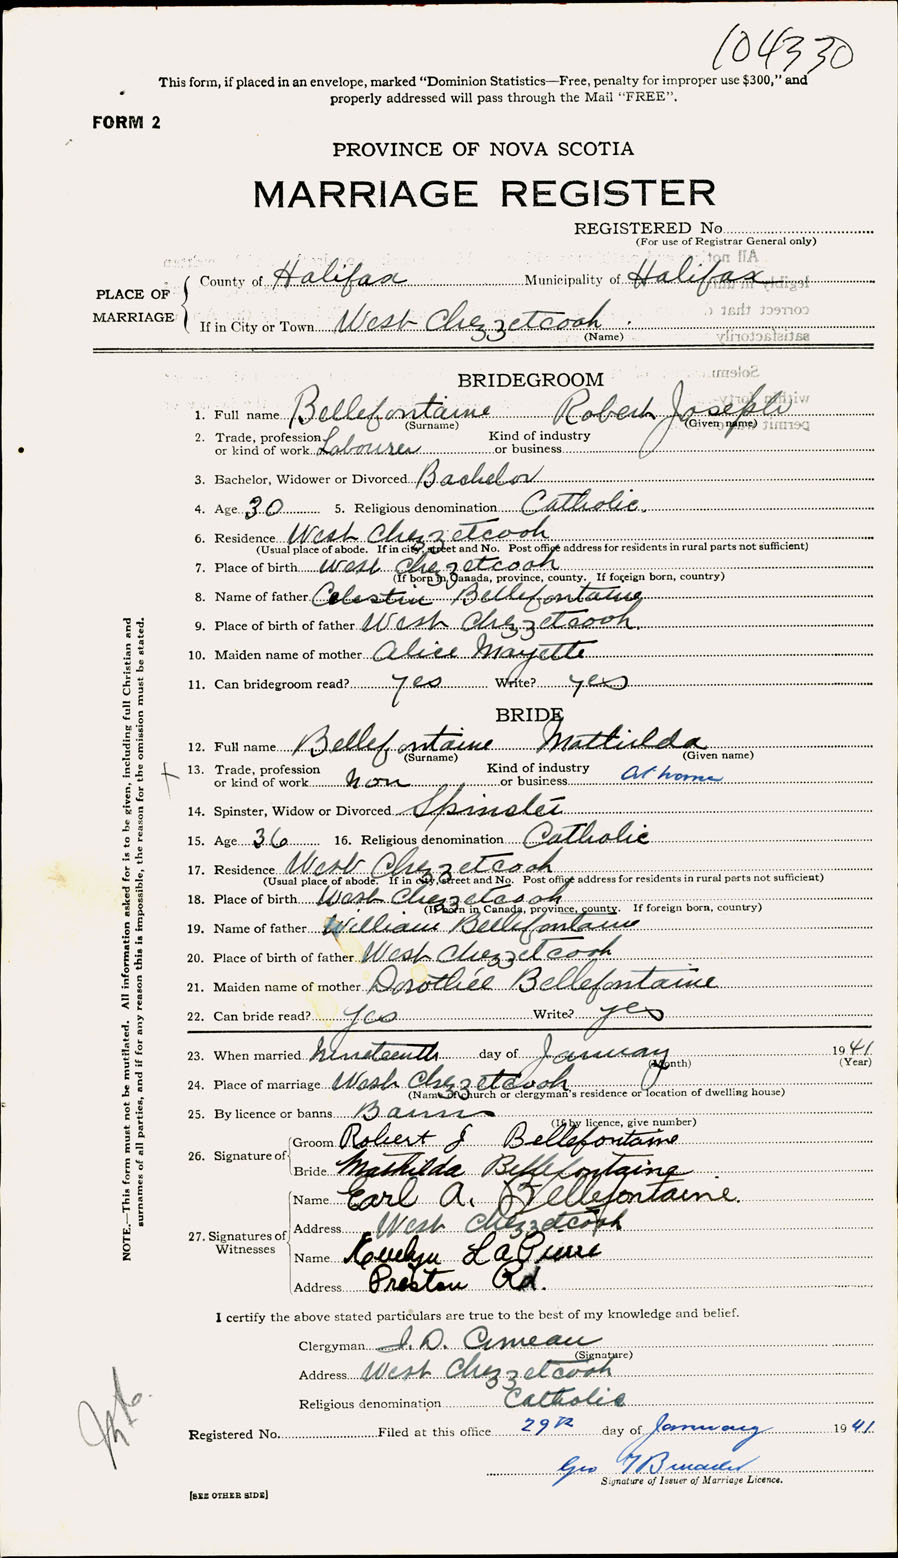 104330
This form, if placed in an envelope, marked "Dominion Statistics—Free, penalty for improper use $300," and
properly addressed will pass through the Mail "FREE".
FORM 2
PROVINCE OF NOVA SCOTIA
MARRIAGE REGISTER
REGISTERED No.
(For use of Registrar General only)
PLACE OF MARRIAGE
County of Halifax Municipality of Halifax
If in City or Town West Chezzetcook
(Name)
BRIDEGROOM
1. Full name Bellefontaine Robert Joseph
(Surname) (Given name)
2. Trade, profession or kind of work Labourer Kind of industry or business
3. Bachelor, Widower or Divorced Bachelor
4. Age 30 5. Religious denomination Catholic.
6. Residence West Chezzetcook
(Usual place of abode. If in city, street and No. Post office address for residents in rural parts not sufficient)
7. Place of birth West Chezzetcook
(If born in Canada, province, county. If foreign born, country)
8. Name of father Celestin Bellefontaine
9. Place of birth of father West Chezzetcook
10. Maiden name of mother Alice Mayette
11. Can bridegroom read? yes Write? yes
BRIDE
12. Full name Bellefontaine Mathilda
(Surname) (Given name)
13. Trade, profession or kind of work non Kind of industry or business At home
14. Spinster, Widow or Divorced Spinster
15. Age 36 16. Religious denomination Catholic
17. Residence West Chezzetcook
(Usual place of abode. If in city, street and No. Post office address for residents in rural parts not sufficient)
18. Place of birth West Chezzetcook
(If born in Canada, province, county. If foreign born, country)
19. Name of father William Bellefontaine
20. Place of birth of father West Chezzetcook
21. Maiden name of mother Dorothée Bellefontaine
22. Can bride read? yes Write? yes
23. When married Nineteenth day of January 1941
(Month) (Year)
24. Place of marriage West Chezzetcook
(Name of church or clergyman's residence or location of dwelling house)
25. By licence or banns Banns
(If by licence, give number)
26. Signature of
Groom Robert J Bellefontaine
Bride Mathilda Bellefontaine
27. Signatures of Witnesses
Name Earl A. Bellefontaine.
Address West Chezzetcook
Name Evelyn LaPierre
Address Preston Rd.
I certify the above stated particulars are true to the best of my knowledge and belief.
Clergyman
(Signature)
Address West Chezzetcook
Religious denomination Catholic
Registered No. Filed at this office 29th day of January 1941
Geo
Signature of Issuer of Marriage Licence.
[SEE OTHER SIDE]
NOTE.—This form must not be mutilated. All information asked for is to be given, including full Christian and
surnames of all parties, and if for any reason this is impossible, the reason for the omission must be stated.